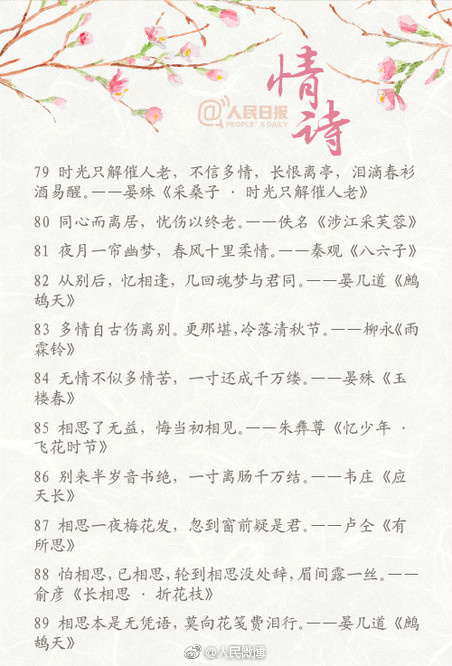 情诗
@人民日报
PEOPLE'S DAILY
79 时光只解催人老，不信多情，长恨离亭，泪滴春衫
酒易醒。——晏殊《采桑子 · 时光只解催人老》
80 同心而离居，忧伤以终老。——佚名《涉江采芙蓉》
81 夜月一帘幽梦，春风十里柔情。——秦观《八六子》
82 从别后，忆相逢，几回魂梦与君同。——晏几道《鹧
鸪天》
83 多情自古伤离别。更那堪，冷落清秋节。——柳永《雨
霖铃》
84 无情不似多情苦，一寸还成千万缕。——晏殊《玉
楼春》
85 相思了无益，悔当初相见。——朱彝尊《忆少年 ·
飞花时节》
86 别来半岁音书绝，一寸离肠千万结。——韦庄《应
天长》
87 相思一夜梅花发，忽到窗前疑是君。——卢仝《有
所思》
88 怕相思，已相思，轮到相思没处辞，眉间露一丝。——
俞彦《长相思 · 折花枝》
89 相思本是无凭语，莫向花笺费泪行。——晏几道《鹧
鸪天》
@人民微博